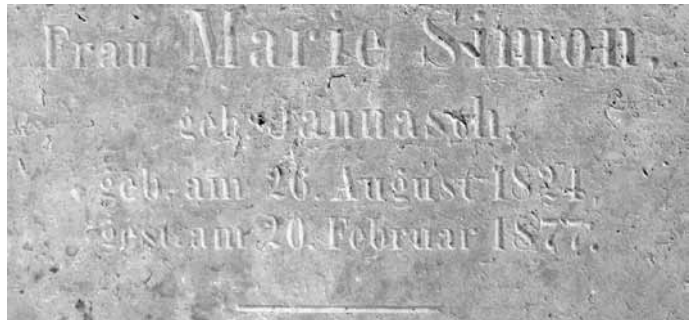 Frau Marie Simon,
geb. Jannasch,
geb. am 26. August 1824,
gest. am 20. Februar 1877.